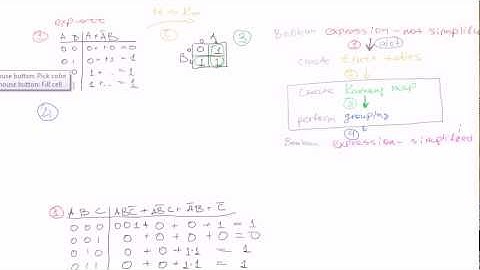 exp → TT
① A B | A + ĀB
0 0 | 0 + 1·0 = 0
0 1 | 0 + 1 = 1
1 0 | 1 + .. = 1
1 1 | 1 + .. = 1
mouse button: Pick color
mouse button: Fill cell
③
A
0 1
B 0 0 1
1 1 1
④
Boolean expression - not simplified
① ↓
create truth tables
② ↓
create Karnaug map
③ ↓
perform grouping
④ ↓
Boolean expression - simplified
① A B C | AB̄C̄ + ĀBC + ĀB + C̄
0 0 0 | 0 0 1 + 0 + 0 + 1 = 1
0 0 1 | 0 + 0 + 0 + 0 = 0
0 1 0 | 0 + 0 + 1·1 = 1
0 1 1 | 0 + 0 + 1·1 = 1